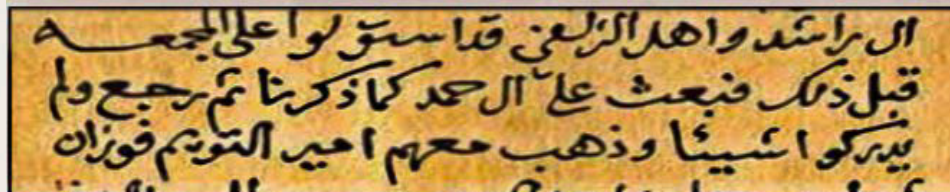 ال راشد واهل الزلفي قد استولوا على المجمعه
قبل ذلك فبعث علي آل حمد كما ذكرنا ثم رجع ولم
يدركوا شيئا وذهب معهم امير التويم فوزان